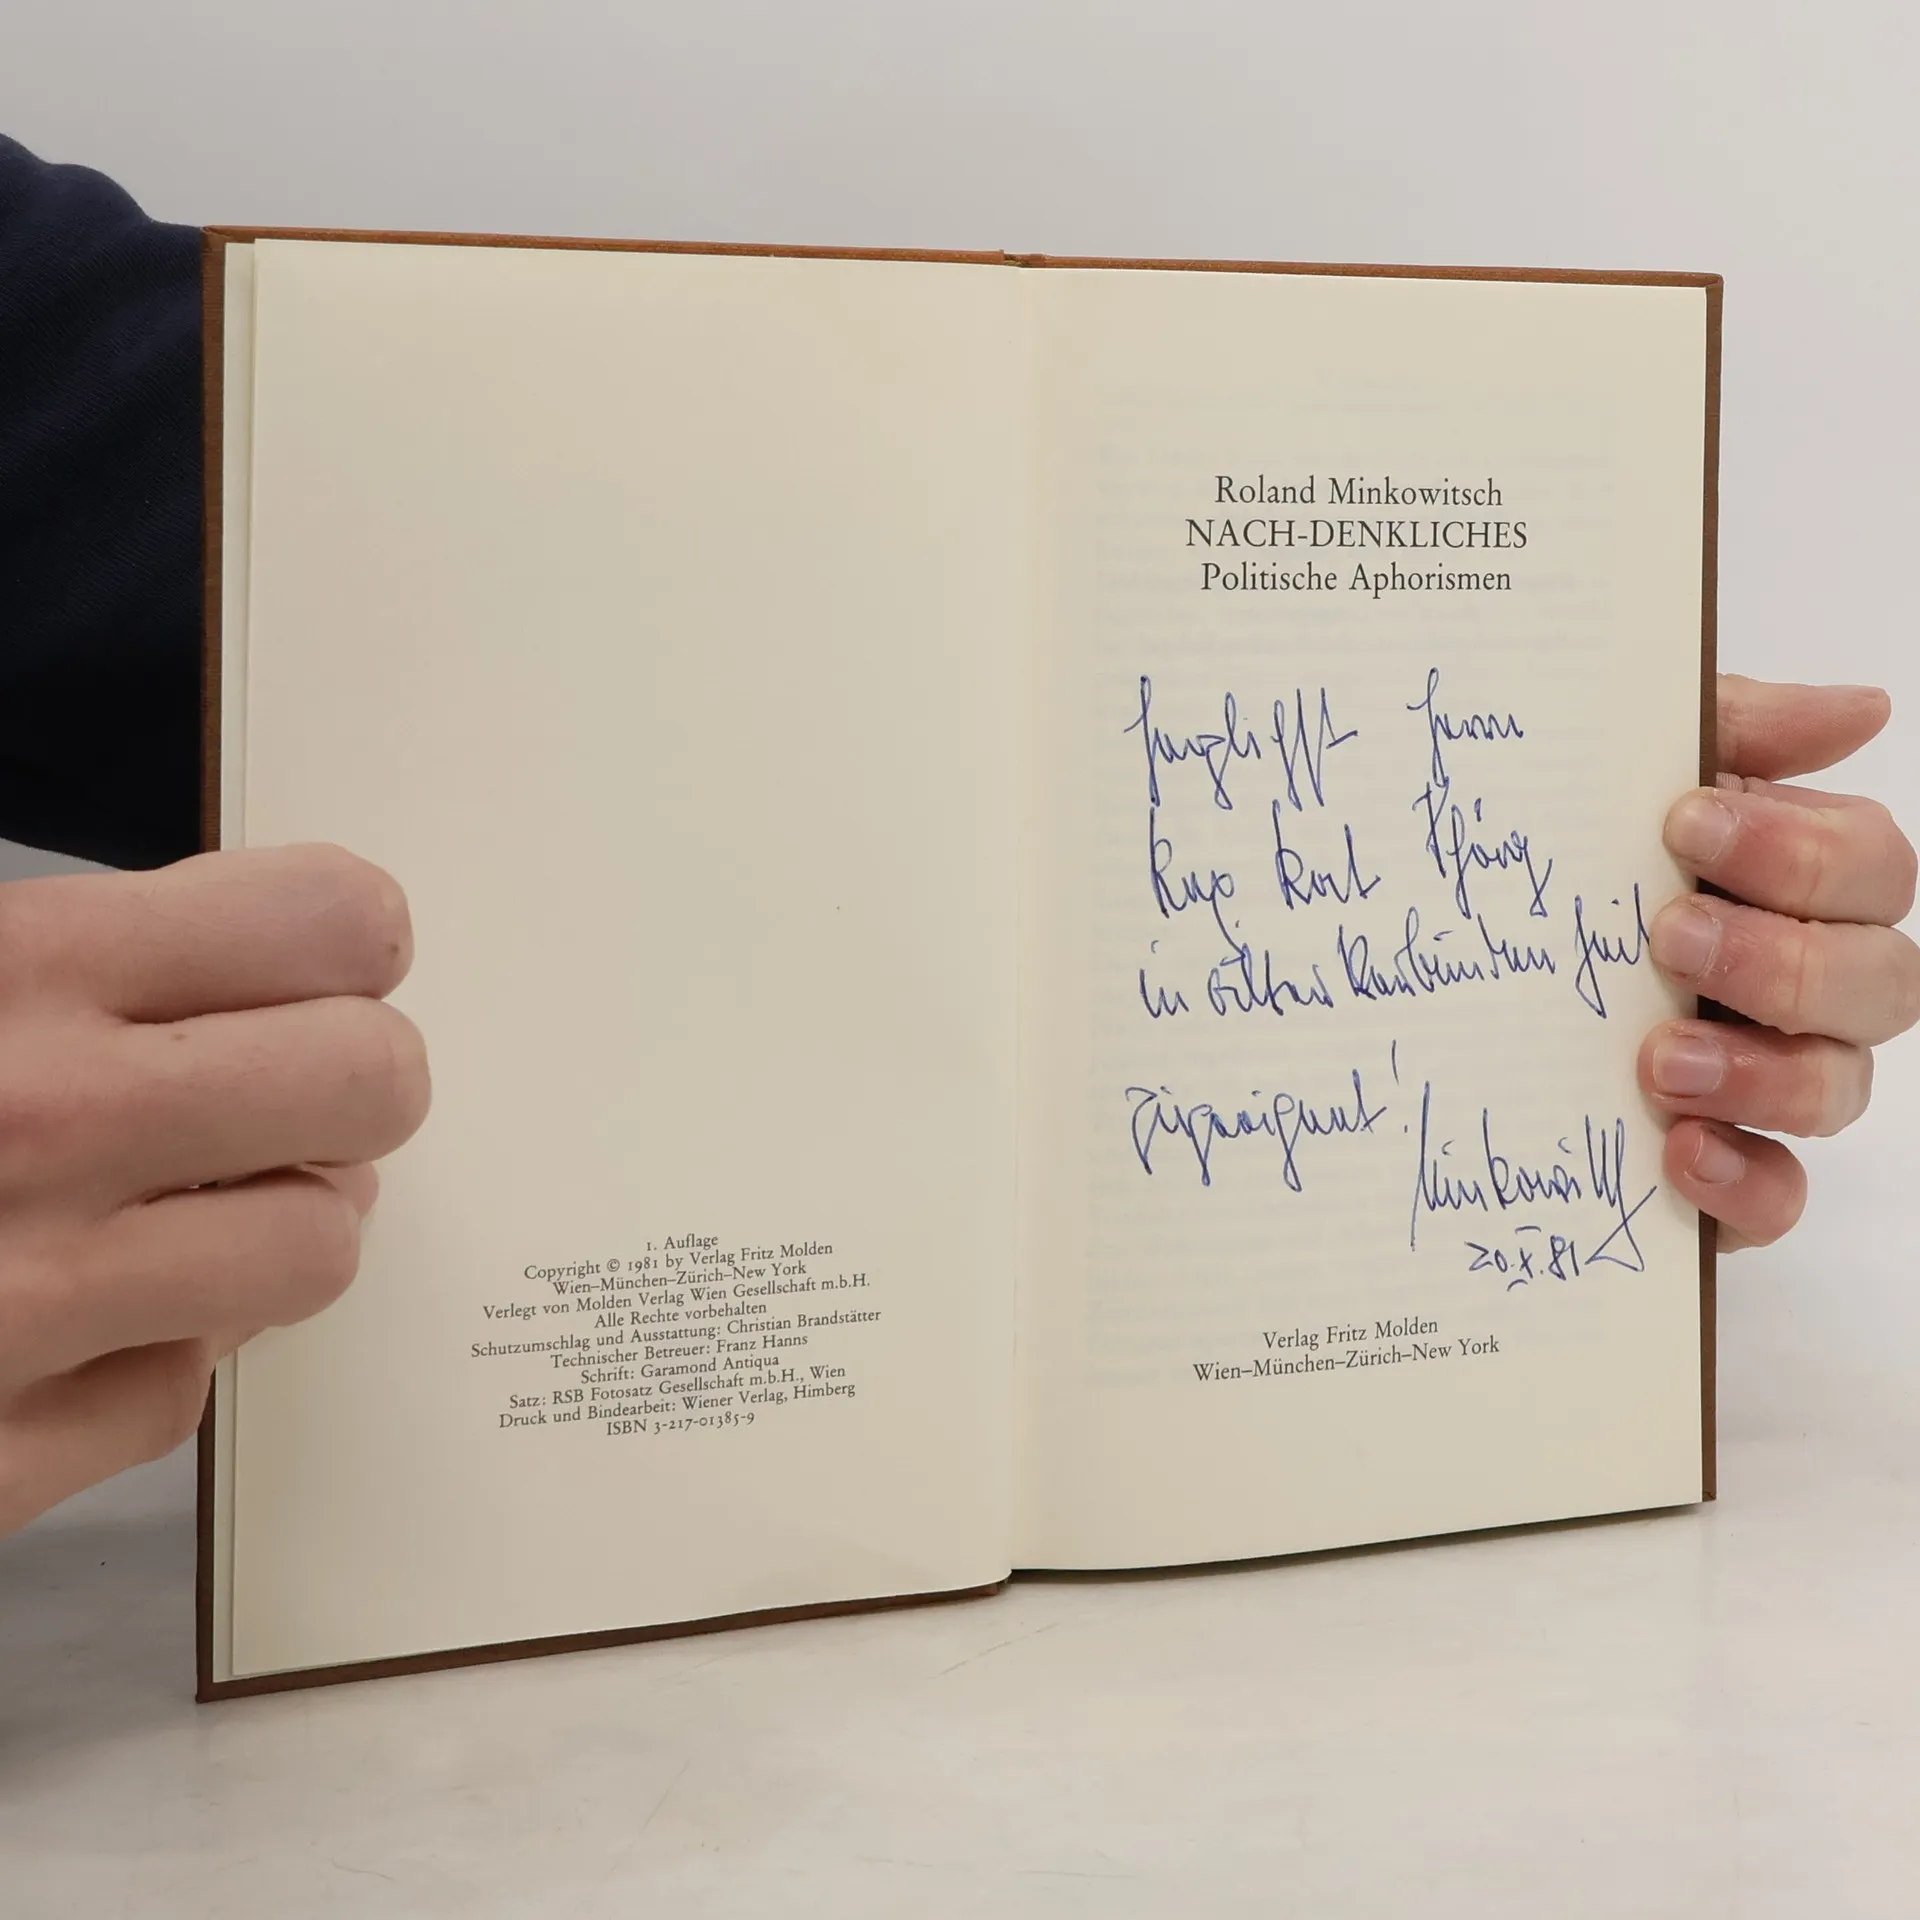 1. Auflage
Copyright © 1981 by Verlag Fritz Molden
Wien–München–Zürich–New York
Verlegt von Molden Verlag Wien Gesellschaft m.b.H.
Alle Rechte vorbehalten
Schutzumschlag und Ausstattung: Christian Brandstätter
Technischer Betreuer: Franz Hanns
Schrift: Garamond Antiqua
Satz: RSB Fotosatz Gesellschaft m.b.H., Wien
Druck und Bindearbeit: Wiener Verlag, Himberg
ISBN 3-217-01385-9
Roland Minkowitsch
NACH-DENKLICHES
Politische Aphorismen
Herzlichst Herrn
in alter Verbundenheit
zugeeignet!
Minkowitsch
20.X.81
Verlag Fritz Molden
Wien–München–Zürich–New York